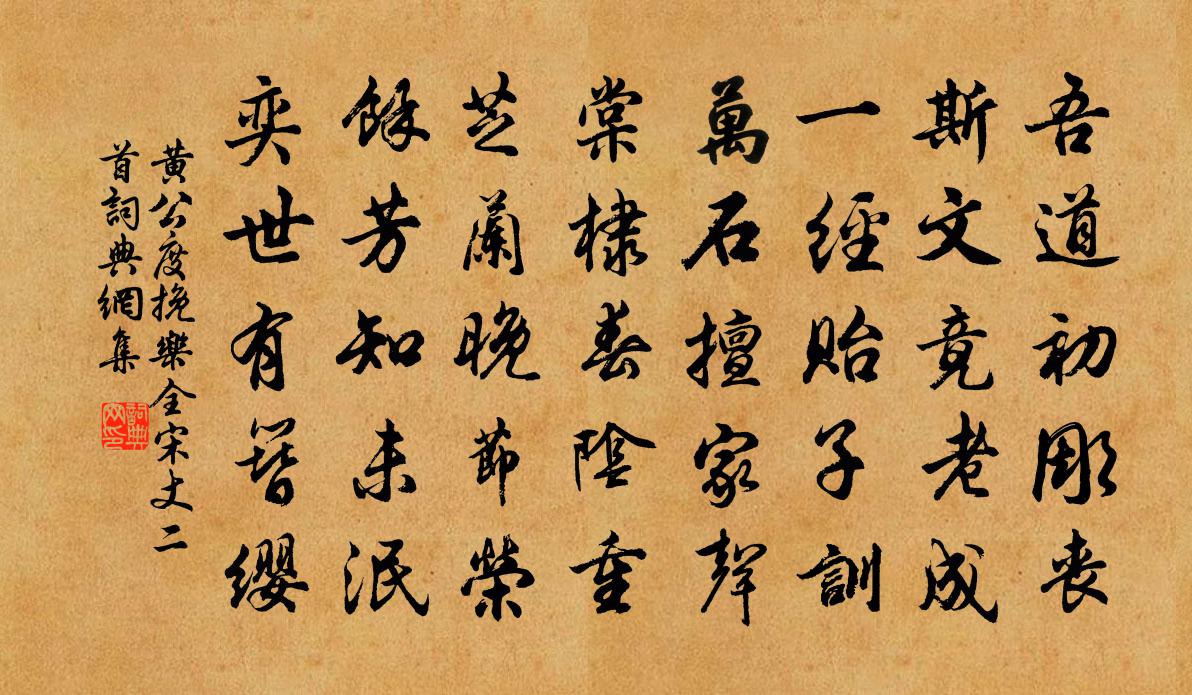 吾道初彫喪
斯文竟老成
一經貽子訓
萬石擅家聲
棠棣春陰重
芝蘭晚節榮
餘芳知未泯
奕世有簪纓
黄公度挽樂全宋丈二
首詞典網集
詞典網印